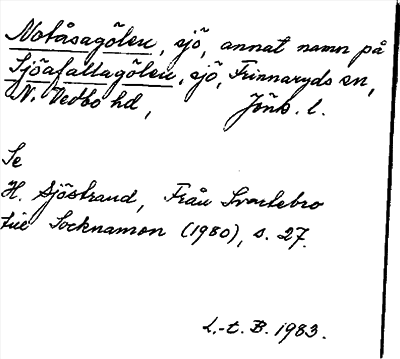 Notåsagölen, sjö, annat namn på
Sjöafallagölen, sjö, Frinnaryds sn,
N. Vedbo hd, Jönk. l.
Se
H. Sjöstrand, Från Svartebro
till Socknamon (1980), s. 27.
L.-t. B. 1983.